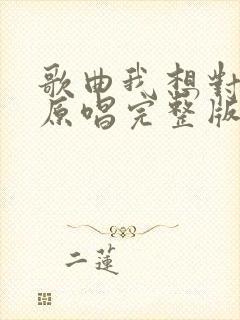 歌曲我想對
原唱完整版
二蓮